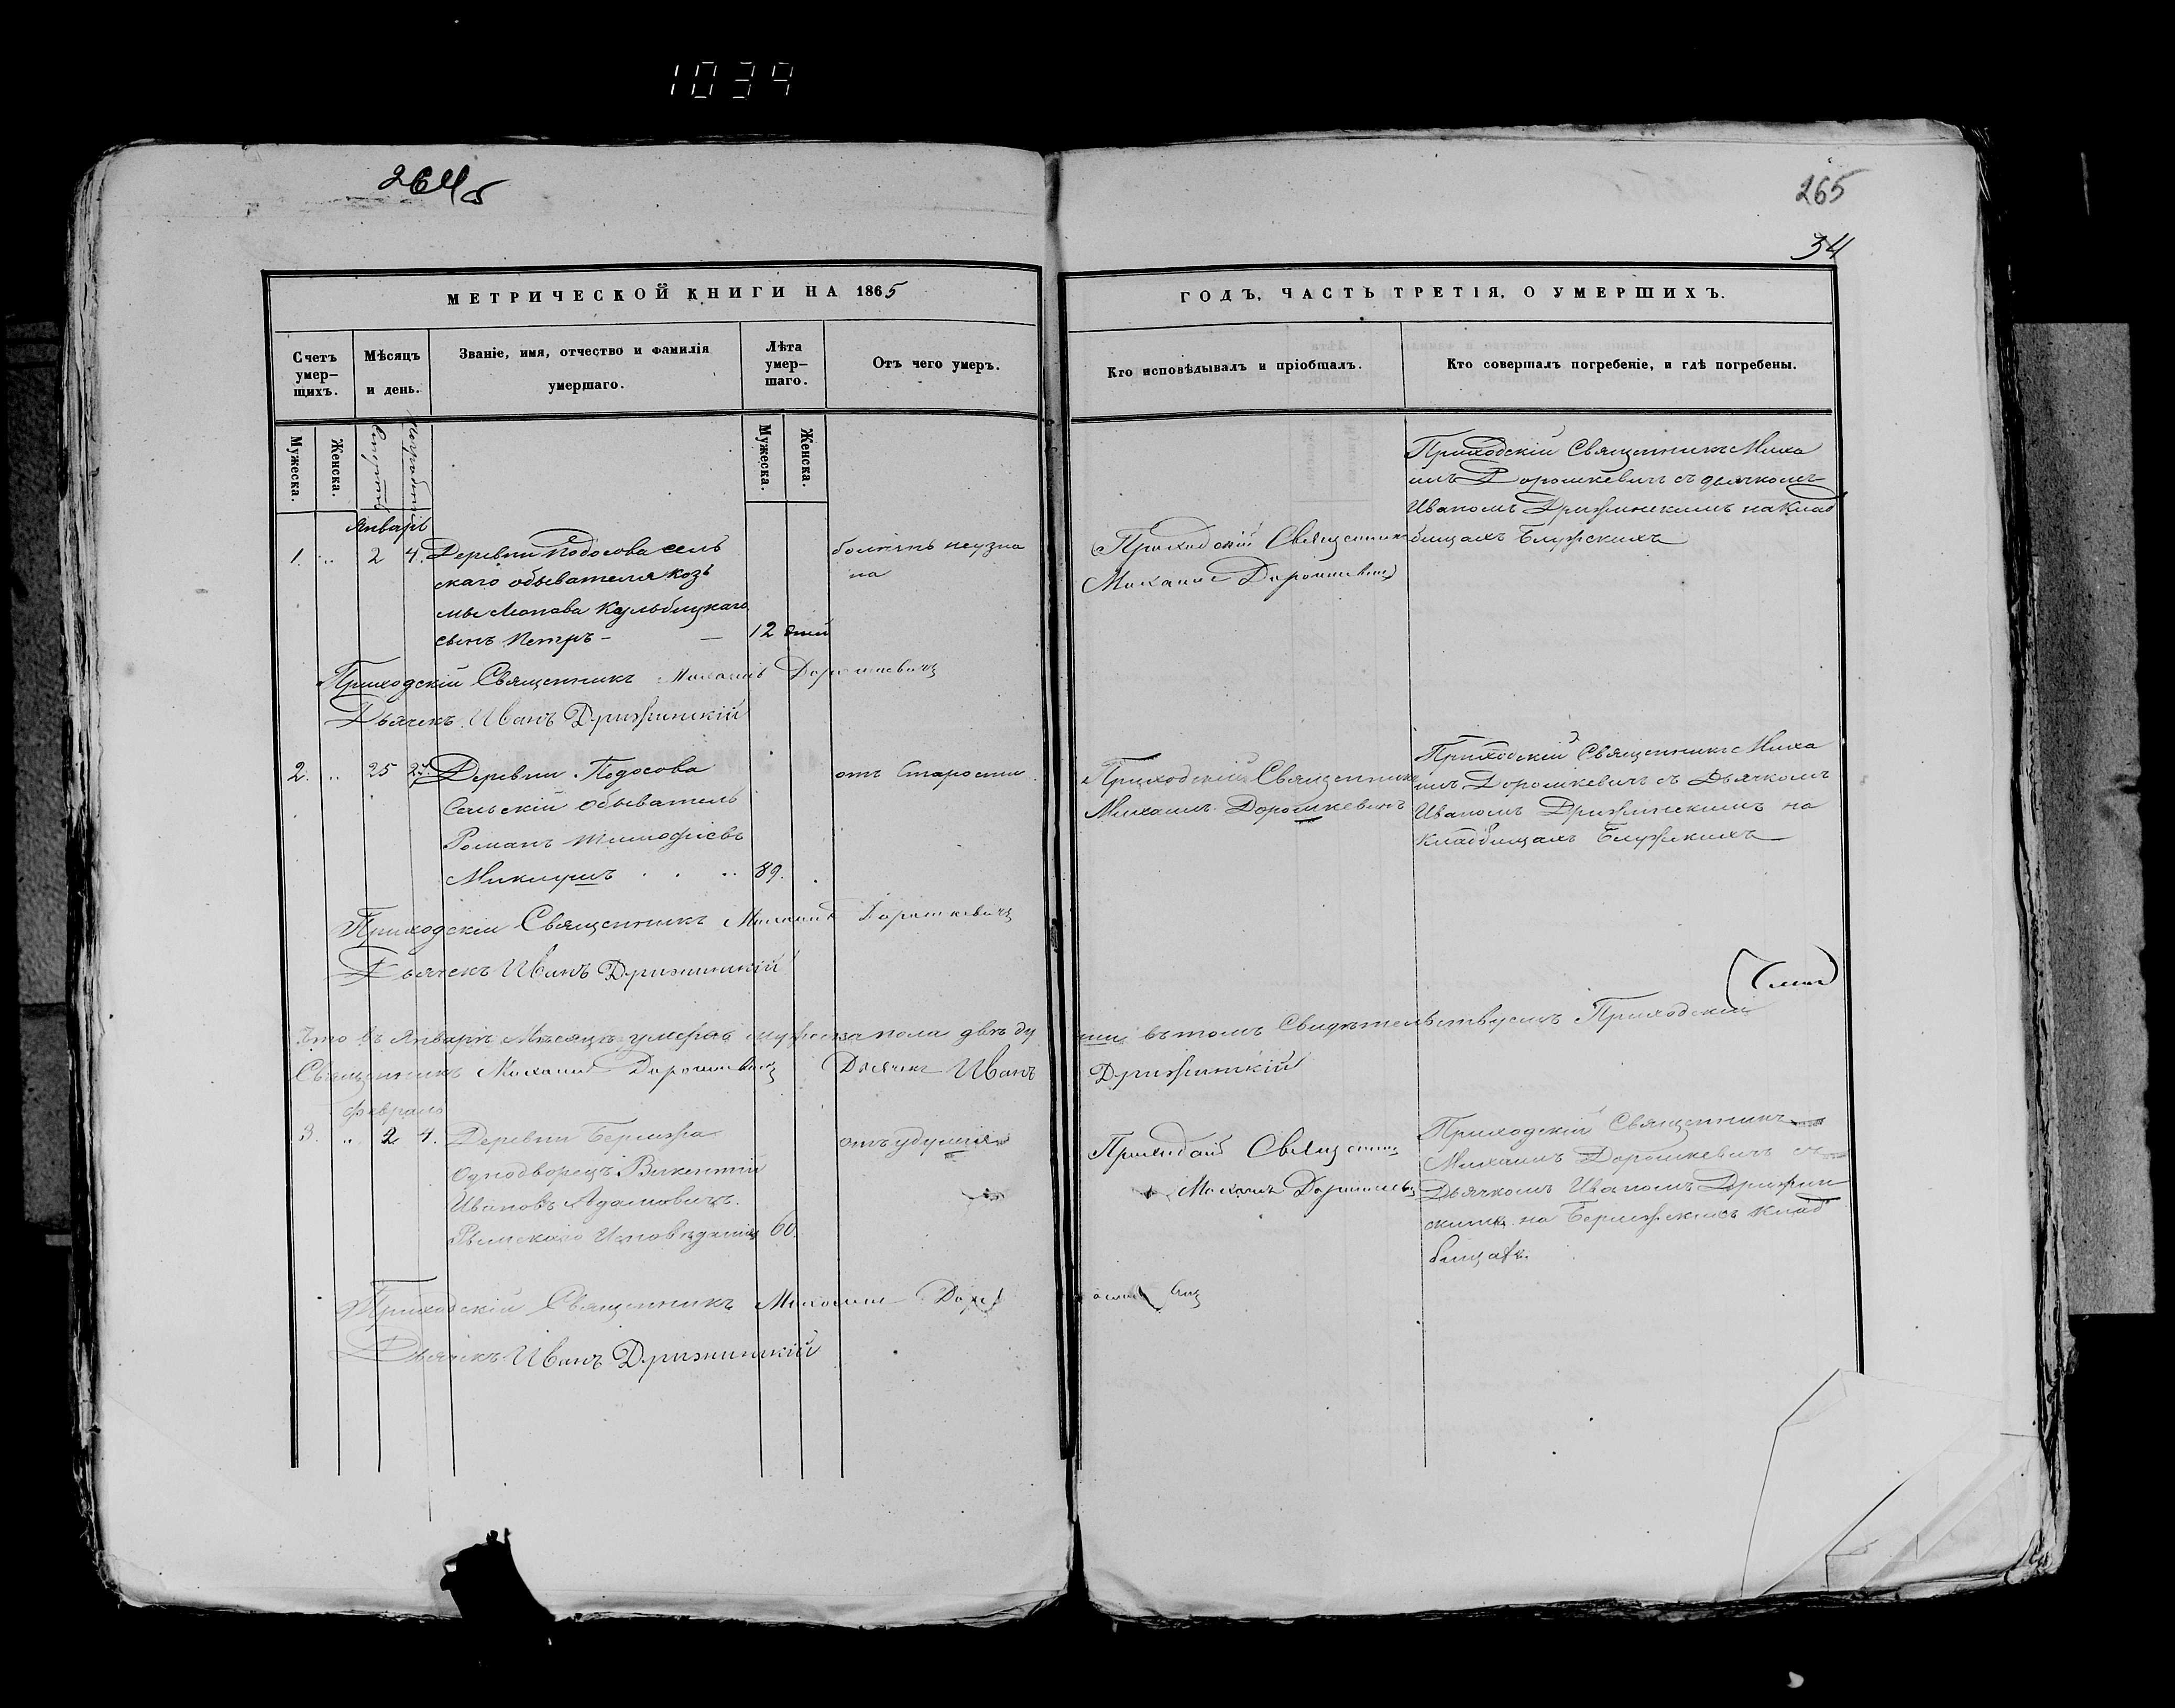 1034
264б
265
34
МЕТРИЧЕСКОЙ КНИГИ НА 1865
ГОДЪ, ЧАСТЬ ТРЕТІЯ, О УМЕРШИХЪ.
Счетъ умер-
шихъ.
Мѣсяцъ
и день.
Званіе, имя, отчество и фамилія
умершаго.
Лѣта
умер-
шаго.
Отъ чего умеръ.
Кто исповѣдывалъ и пріобщалъ.
Кто совершалъ погребеніе, и гдѣ погребены.
Мужеска.
Женска.
Смерти
Погребенія
Мужеска.
Женска.
Январь
1. .. 2 4.
Деревни Подосова сель
скаго обывателя Козь
мы Леонова Кульбицкаго
сынъ Петръ -
12 дней
болезнь неузна
на
Приходскій Священникъ
Михаилъ Дорошкевичъ
Приходскій Священникъ Миха
илъ Дорошкевичъ съ дьячкомъ
Иваномъ Дрижинскимъ на Клад
бищахъ Блужскихъ
Приходскій Священникъ Михаилъ Дорошкевичъ
Дьячекъ Иванъ Дрижинскій
2. .. 25 27.
Деревни Подосова
Сельскій обыватель
Романъ Тимофіевъ
Микишъ . . ..
89.
отъ Старости
Приходскій Священникъ
Михаилъ Дорошкевичъ
Приходскій Священникъ Миха
илъ Дорошкевичъ съ Дьячкомъ
Иваномъ Дрижинскимъ на
Кладбищахъ Блужскихъ
Приходскій Священникъ Михаилъ Дорошкевичъ
Дьячекъ Иванъ Дрижинскій
Что въ Январѣ Мѣсяцѣ умерло мужеска пола двѣ ду
ши въ томъ Свидѣтельствуемъ Приходскій
Священникъ Михаилъ Дорошкевичъ Дьячекъ Иванъ
Дрижинскій
Февраль
3. .. 2 4.
Деревни Беришта
Однодворецъ Викентій
Ивановъ Адамовичъ.
Римскаго Исповѣданія
60.
отъ удушія
Приходскій Священникъ
Михаилъ Дорошкевичъ
Приходскій Священникъ
Михаилъ Дорошкевичъ съ
Дьячкомъ Иваномъ Дрижин
скимъ на Клад
бищахъ.
Приходскій Священникъ Михаилъ Дорошкевичъ
Дьячекъ Иванъ Дрижинскій